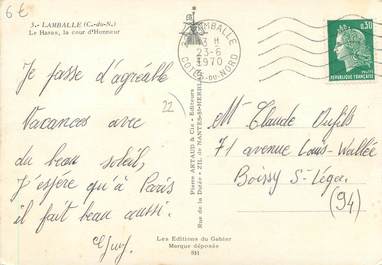 6€
3. - LAMBALLE (C.-du-N.)
Le Haras, la cour d'Honneur
LAMBALLE
13 H
23-6
1970
COTES-DU-NORD
0,30
REPUBLIQUE FRANÇAISE
Je passe d'agréable
Vacances avec
du beau soleil,
J'espère qu'à Paris
il fait beau aussi.
Guy.
22
Pierre ARTAUD & Cie - Editeurs
Rue de la Dutée - ZIL de NANTES-St-HERBLAIN
Mr Claude Dufils
71 avenue Louis-Wallée
Boissy St-Léger
(94)
Les Editions du Gabier
Marque déposée